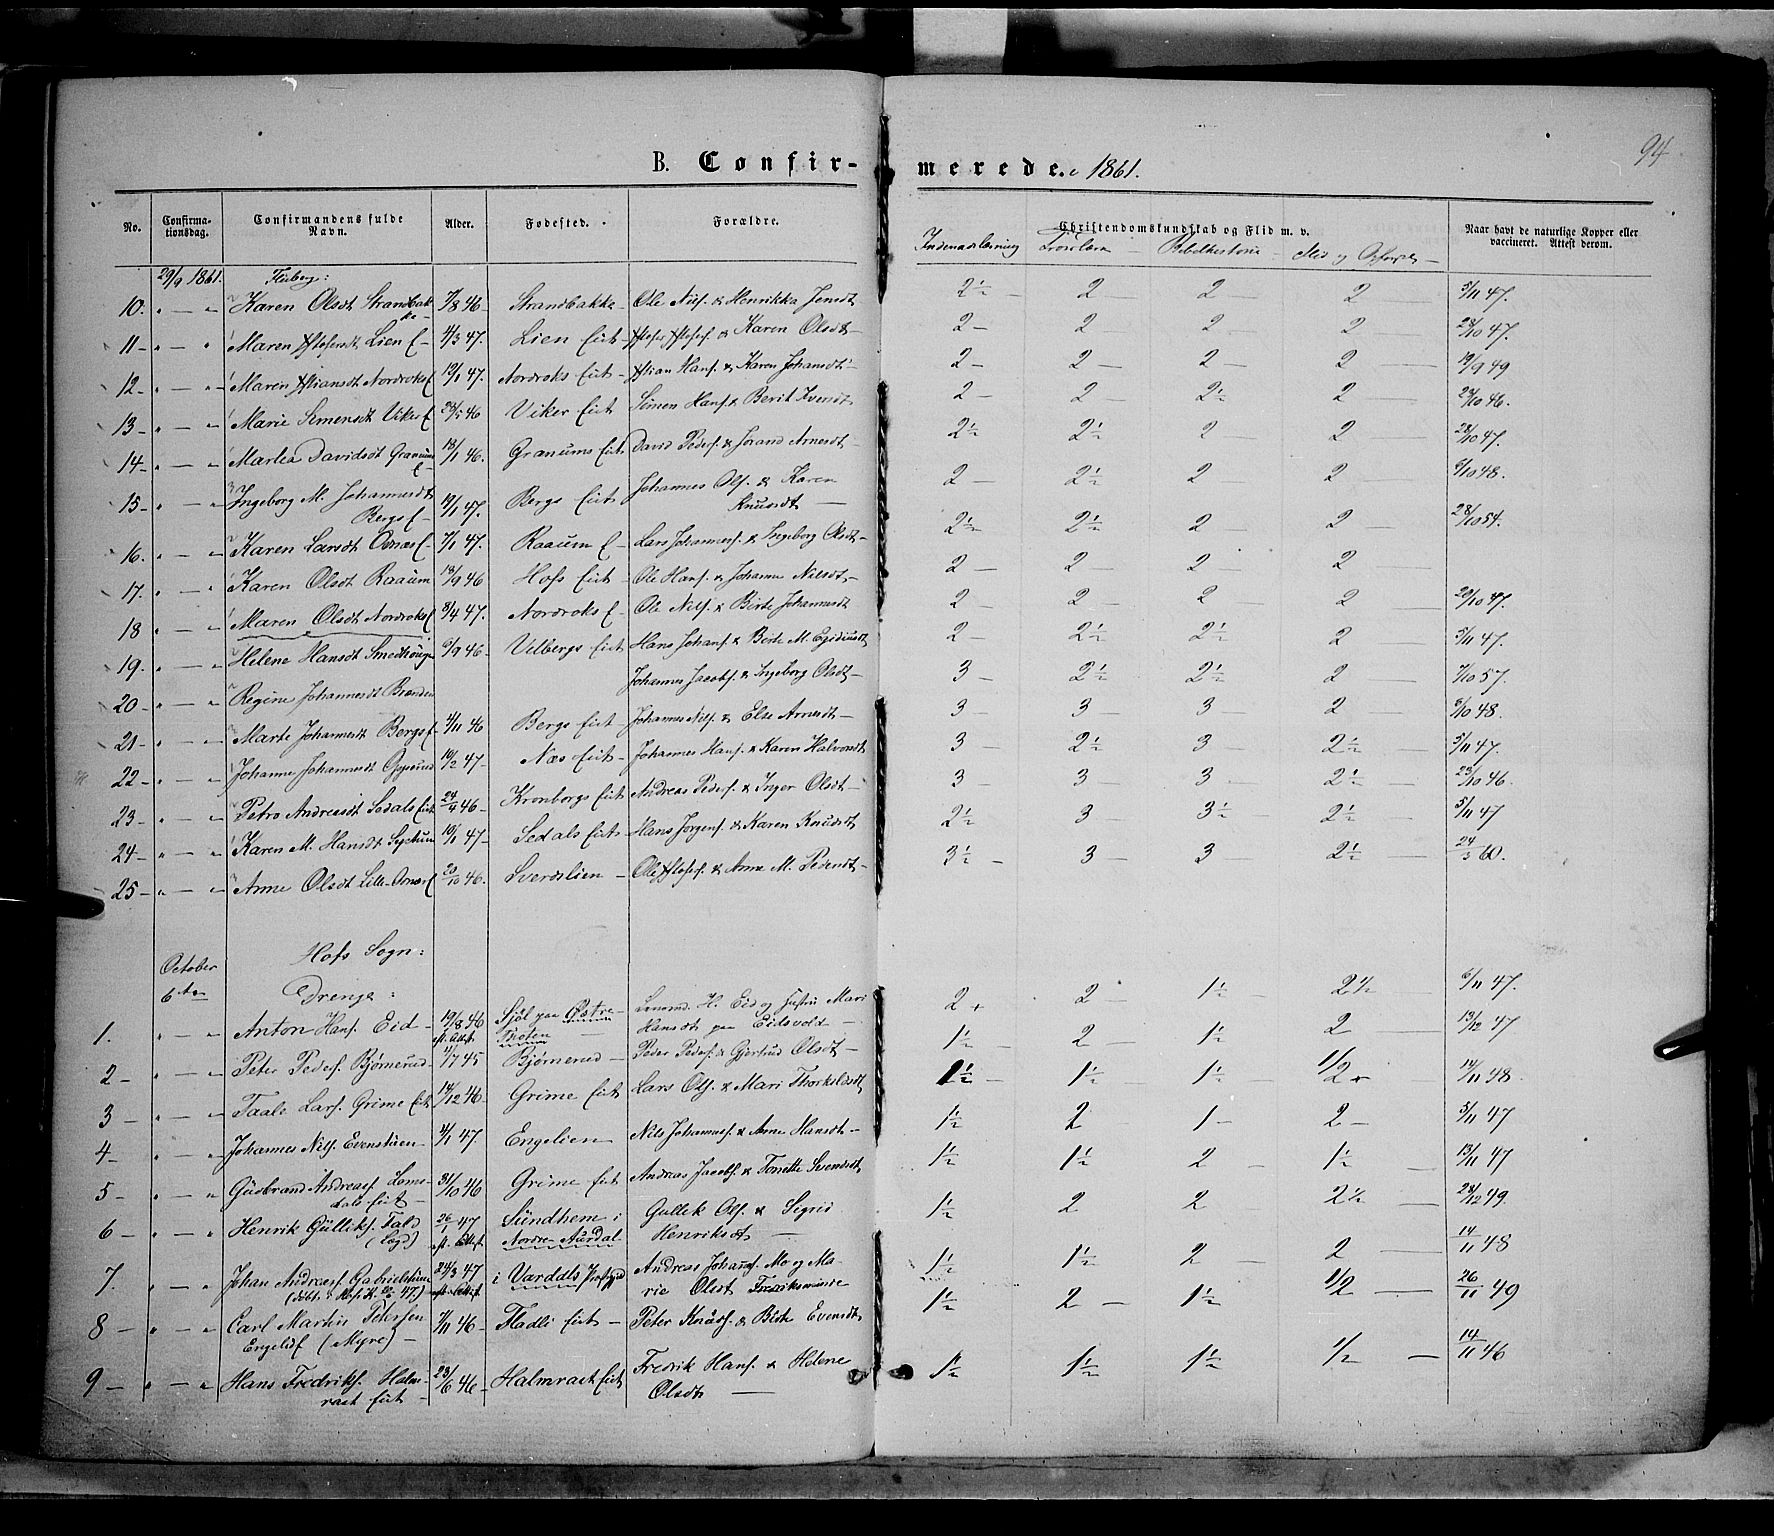 94
B. Confirmerede. 1861.
No. Confirmationsdag. Confirmandens fulde Navn. Alder. Fødested. Forældre. Christendomskundskab og Flid m. v. Naar havt de naturlige Kopper eller vaccineret. Attest derom.
Indenadslæsning Troeslære Bibelhistorie Flid og
29/9 1861. Fluberg:
10. " — " Karen Olsdt Strandbakke 7/8 46 Strandbakke Ole Nils. & Henrikka Jensdt 2½ — 2 2 — 2 5/11 47.
11 — " — " Maren Lien 4/3 47. Lien Eiet & Karen Olsdt — 2 — 2 2 — 2 28/10 47.
12 — " — " Maren Nordroks 19/1 47. Nordroks Eiet Hans. & Karen Johansdt 2 — 2 — 2 — 2 — 19/9 49
13 — " — " Marie Simensdt Viker 23/5 46 Viker Eiet Simen Hans. & Berit Iversdt 2 — 2 — 2½ 2 — 23/10 46.
14 — " — " Marthea Davidsdt Granums 18/1 46. Granums Eiet David Peders. & Jorand Arnesdt 2½ 2½ 2 2 — 28/10 47.
15 — " — " Ingeborg M. Johannesdt Bergs 19/1 47. Bergs Eiet Johannes Ols. & Karen Knudsdt — 2 — 2½ 2 2 — 6/10 48.
16. " — " Karen Larsdt Odnæs 7/1 47. Raaum Lars Johannes. & Ingeborg Olsdt — 2½ 2½ 2 — 2 — 28/10 54.
17. " — " Karen Olsdt Raaum 18/9 46 Hofs Eiet Ole Hans. & Johanne Nilsdt — 2 — 2 — 2 — 2
18 " — " Maren Olsdt Nordroks 8/4 47. Nordroks Ole Nils. & Birte Johannesdt 2 — 2 — 2 2 — 20/10 47.
19. " — " Helene Hansdt Smedhøugen 6/9 46 — Velbergs Eiet Hans Johans. & Berte M. Egidiusdt 2 — 2½ 2½ — 2 — 5/11 47.
20 — " — " Regine Johannesdt Brænden Johannes Jacobs. & Ingeborg Olsdt — 3 — 2½ 2½ 2 — 7/10 57.
21 — " — " Marte Johannesdt Bergs 4/11 46 Bergs Eiet Johannes Nils. & Else Arnesdt — 3 — 3 3 — 2 — 6/10 48.
22 — " — " Johanne Johannesdt 16/2 47 — Næs Eiet — Johannes Hans. & Karen Halvorsdt 3 — 2½ 3 2½ — 5/11 47.
23 — " — " Petra Andreasdt Sedals Eiet 24/4 46 — Kronborgs Eiet Andreas Peders. & Inger Olsdt — 3 — 3 3 — 2½ — 23/10 46.
24 — " — " Karen M. Hansdt 16/1 47 — Sedals Eiet — Hans Jørgens. & Karen Knudsdt 2½ 3 — 3½ — 2½ — 5/11 47
25 — " — " Anne Olsdt Lille-Odnæs 20/10 46. Sverdslien — Ole & Anne M. Pedersdt — 3½ — 3 — 3 2½ — 24/3 60.
Hofs Sogn:
October 6te Drenge:
1. " — " Anton Hans. Eid — 19/8 46 eft. Attest Sjöl paa Østre Toten H. Eid og Hustru Mari Hansdt paa Eidsvold — 2 + 2 — 1½ — 2½ — 6/11 47.
2 — " — " Peter Peders. Bjørnerud 4/7 45 Bjørnerud — Peder Peders. & Gjertrud Olsdt — 1½ — 2 — 1½ 2 — 13/12 47
3 — " — " Taale Lars. Grime Eiet 14/12 46 Grime Eiet Lars Ols. & Mari Thorkildsdt 1½ — 1½ 1½ — 1/2 + 14/11 48.
4 — " — " Johannes Nils. Evenstuen — 4/1 47 Engelien — Nils Johannes. & Anne Hansdt — 1½ 2 1 — 2 — 5/11 47
5 — " — " Gudbrand Andreas. Lomsdals Eiet — 31/10 46 Grime Eiet Andreas Jacobs. & Tonette Svendsdt 1½ 1½ 2 — 1½ — 13/11 47
6 — " — " Henrik Gulliks. 26/1 47 eft. Attest. Sundhem i Nordre Aurdal Gullik Ols. & Sigrid Henriksdt — 1½ 2 2 2½ — 28/12 49
7. " — " Johan Andreas. Gabrielstuen 24/3 47 eft. Attest i Vardals Præstgjd Andreas Johans. Mo og Marie Olsdt Fredriksminde 1½ 1½ 2 — 2 — 14/11 48
8 — " — " Carl Martin Petersen (Myre) — 7/11 46 — Fladli Eiet — Peter Knuds. & Birte Evensdt 1½ 2 — 1½ 1/2 — 26/11 49
9 — " — " Hans Fredriks. Halmrast Eiet — 23/6 46 — Halmrast Eiet Fredrik Hans. & Helene Olsdt — 1½ 1½ 1½ 1/2 — 14/11 46